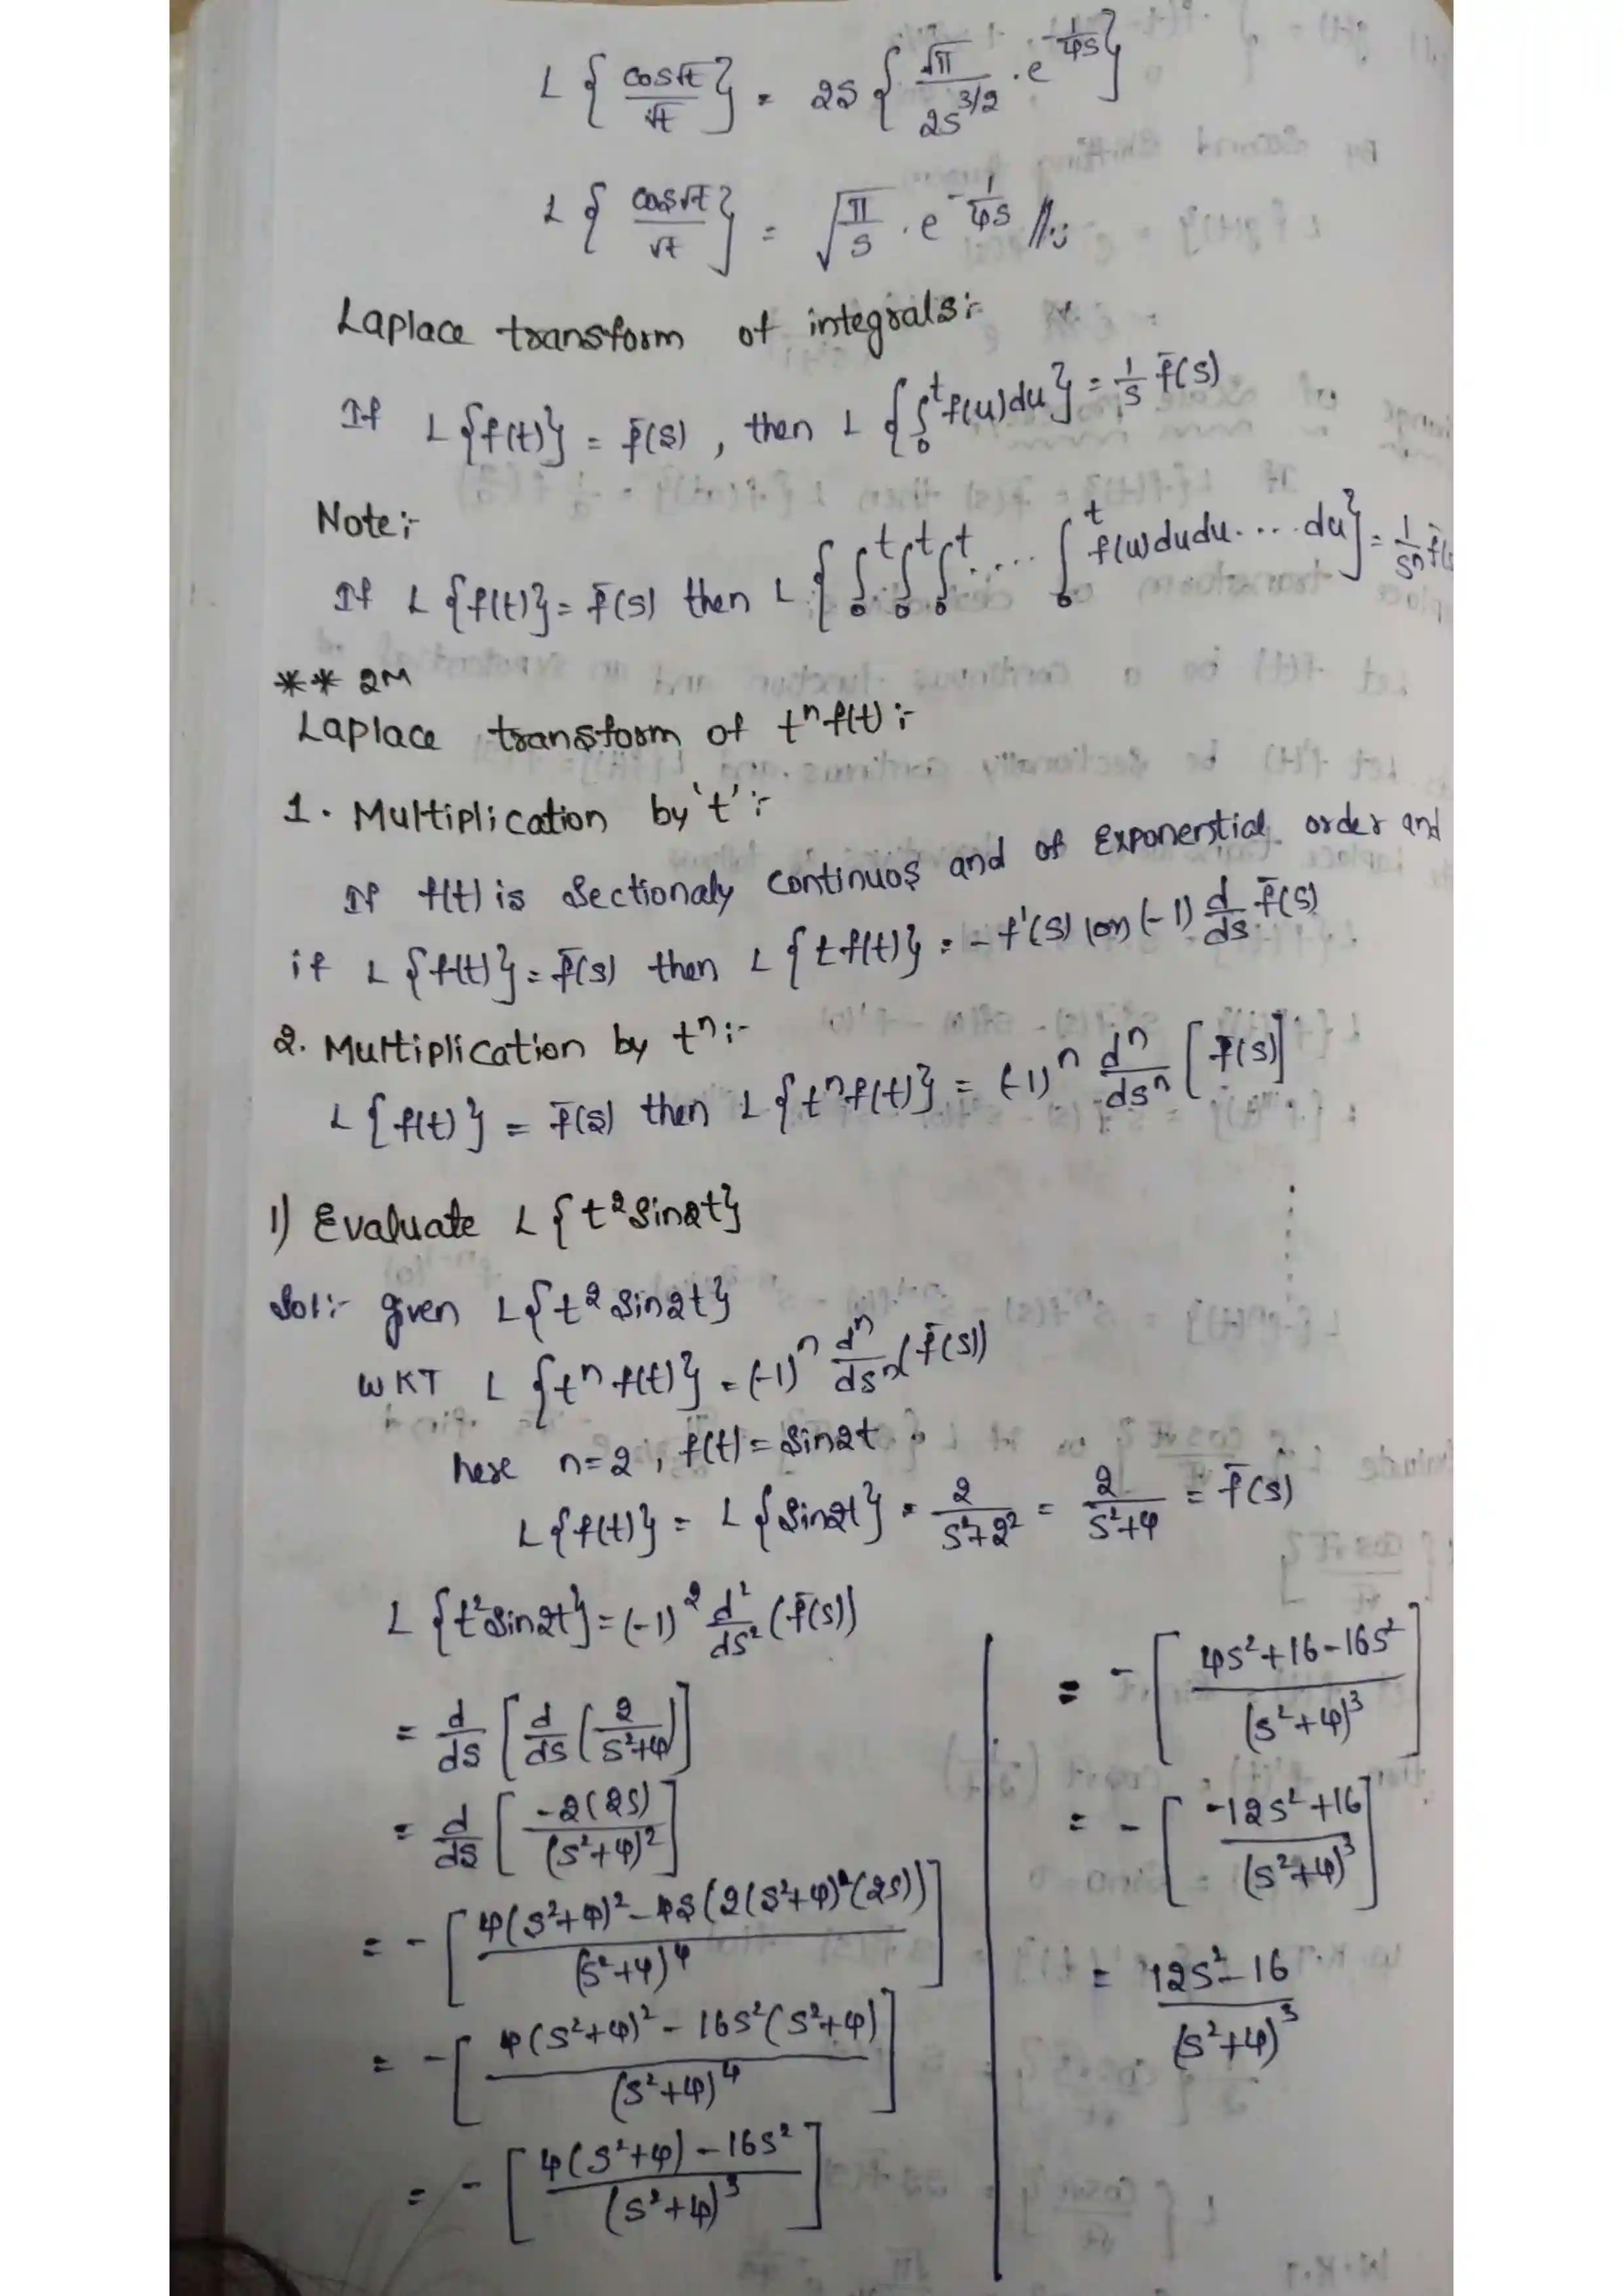 L{cos√t/√t} = 2s{√π/2s^3/2 . e^-1/4s}
L{cos√t/√t} = √π/s . e^-1/4s //.;
Laplace transform of integrals:-
If L{f(t)} = f̄(s), then L{∫₀ᵗ f(u)du} = 1/s f̄(s)
Note:-
If L{f(t)} = f̄(s) then L{∫₀ᵗ∫₀ᵗ∫₀ᵗ.... ∫₀ᵗ f(u)dudu....du} = 1/sⁿ f̄(s
** 2M
Laplace transform of tⁿf(t):-
1. Multiplication by 't':-
If f(t) is Sectionaly Continuos and of Exponential order and
if L{f(t)} = f̄(s) then L{tf(t)} = -f'(s) (or) (-1) d/ds f̄(s)
2. Multiplication by tⁿ:-
L{f(t)} = f̄(s) then L{tⁿf(t)} = (-1)ⁿ dⁿ/dsⁿ [f̄(s)]
1) Evaluate L{t²sin2t}
Sol:- given L{t²sin2t}
WKT L{tⁿ f(t)} = (-1)ⁿ dⁿ/dsⁿ(f̄(s))
here n=2, f(t) = sin2t
L{f(t)} = L{sin2t} = 2/s²+2² = 2/s²+4 = f̄(s)
L{t²sin2t} = (-1)² d²/ds² (f̄(s))
= d/ds [d/ds (2/s²+4)]
= d/ds [-2(2s)/(s²+4)²]
= -[4(s²+4)²-4s(2(s²+4)(2s))/(s²+4)⁴]
= -[4(s²+4)²-16s²(s²+4)/(s²+4)⁴]
= -[4(s²+4)-16s²/(s²+4)³]
= -[4s²+16-16s²/(s²+4)³]
= -[-12s²+16/(s²+4)³]
= 12s²-16/(s²+4)³